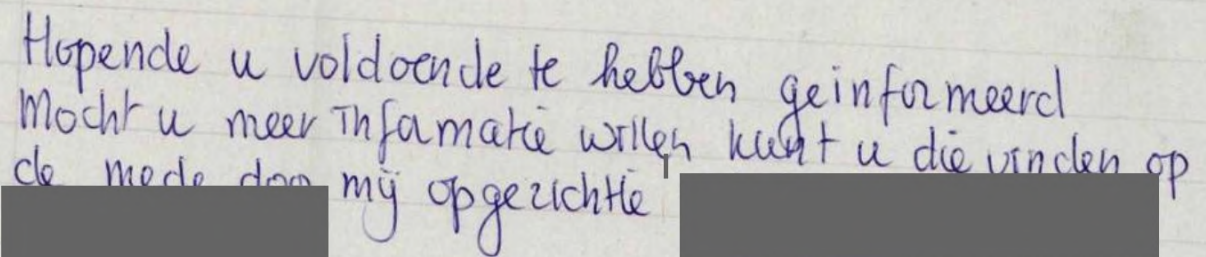 Hopende u voldoende te hebben geinformeerd
Mocht u meer informatie willen kunt u die vinden op
de mede door mij opgerichtte